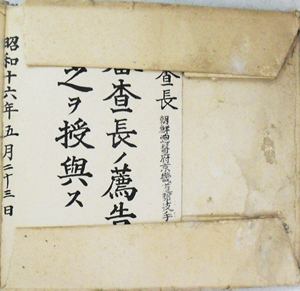 査長
朝鮮總督府京畿道
審査長ノ薦告
之ヲ授與ス
昭和十六年五月二十三日